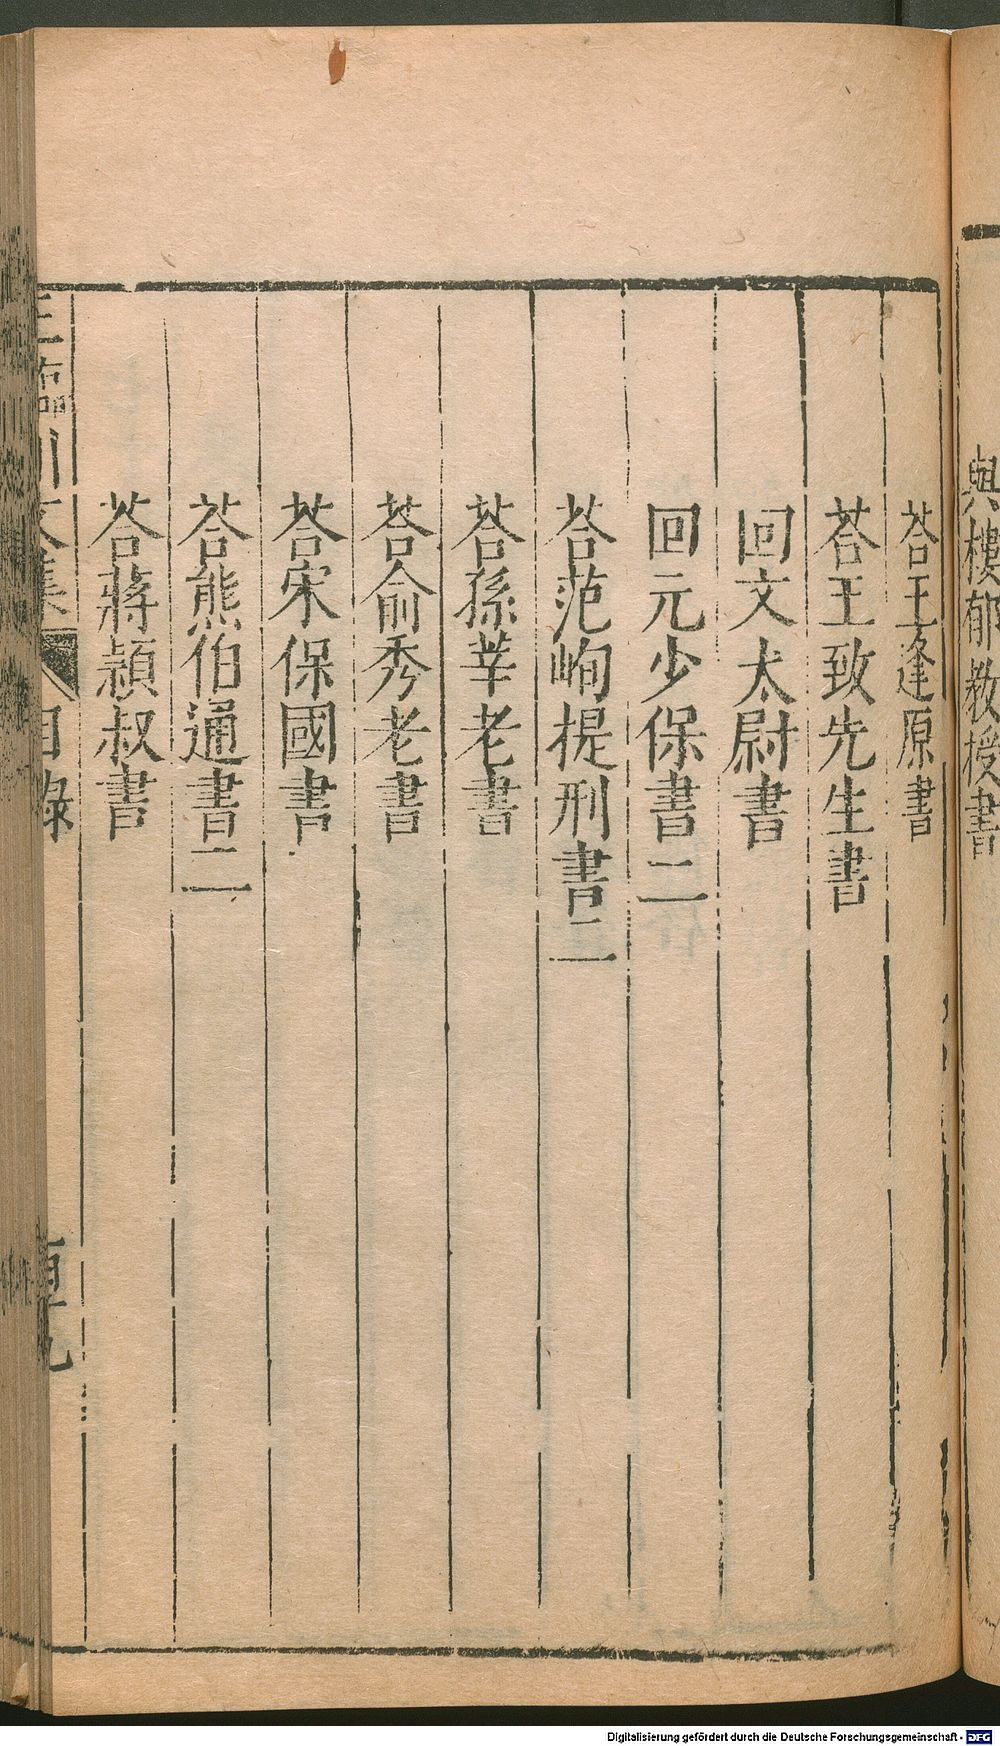 與樓郁教授書
荅王逢原書
荅王致先生書
回文太尉書
回元少保書二
荅范峋提刑書二
荅孫莘老書
荅俞秀老書
荅宋保國書
荅熊伯通書二
荅蔣頴叔書
王臨川文集 目錄
Digitalisierung gefördert durch die Deutsche Forschungsgemeinschaft - DFG